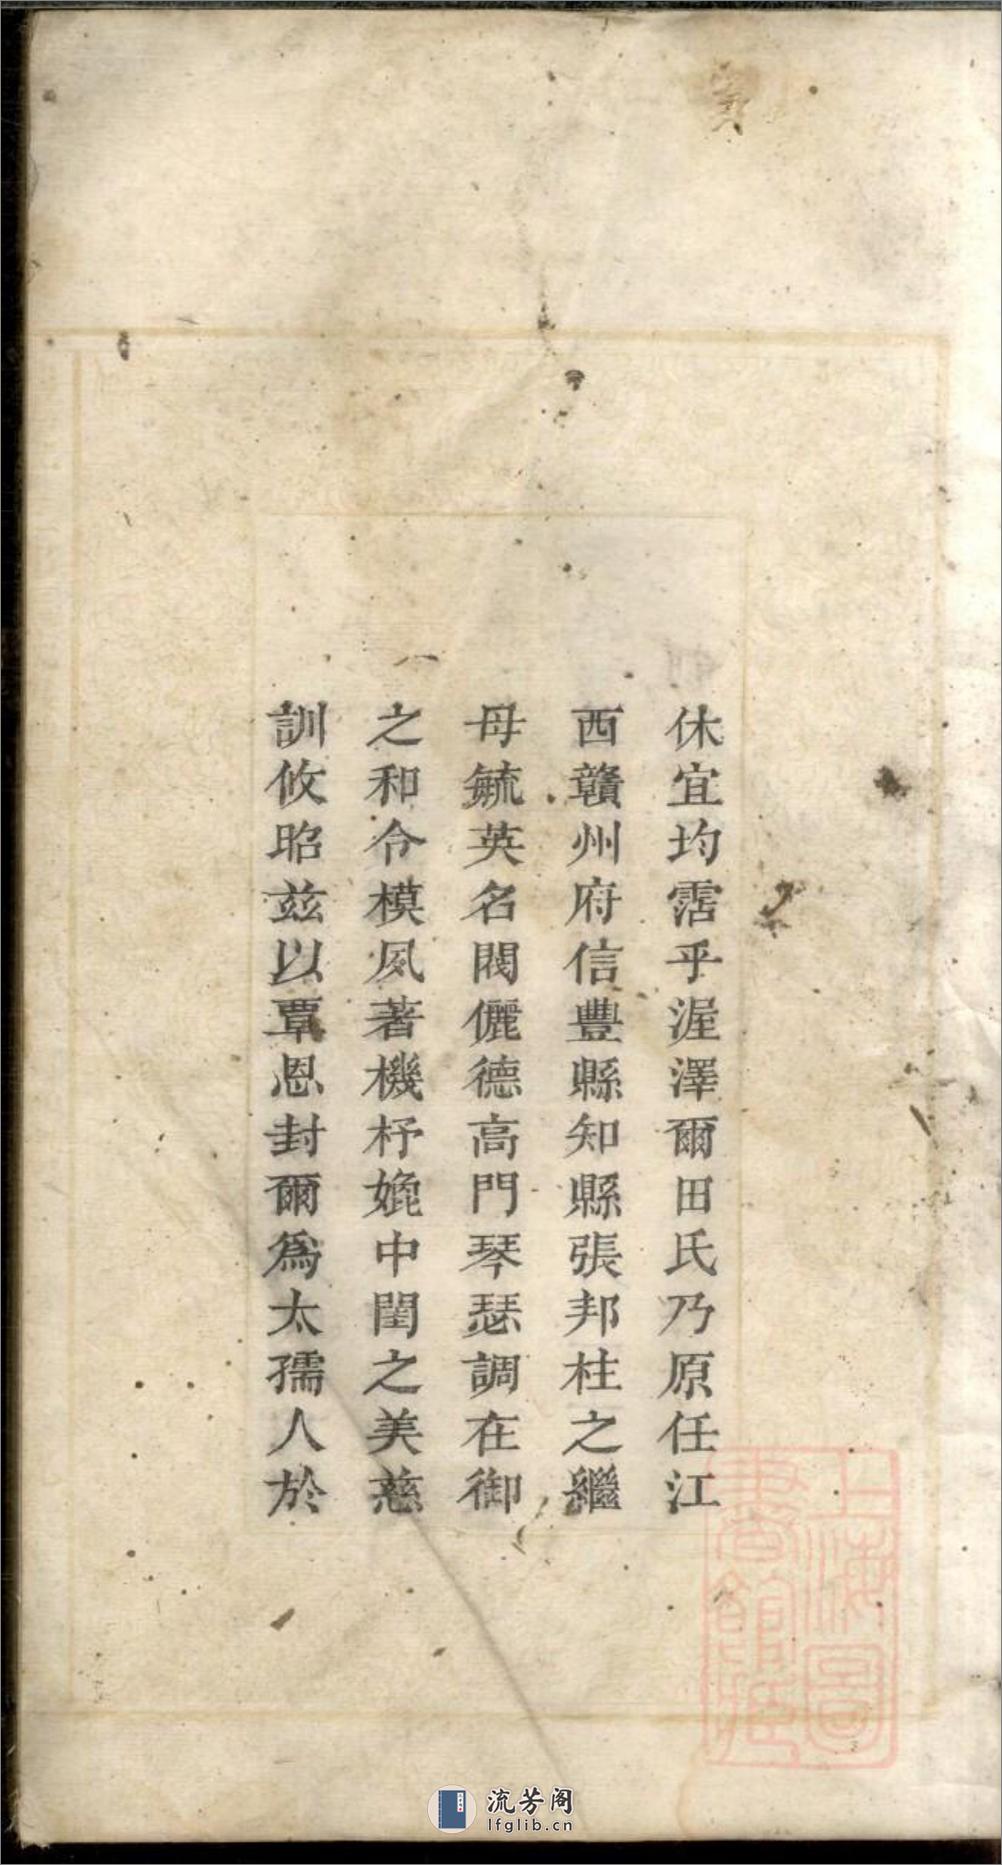 休宜均霑乎渥澤爾田氏乃原任江
西贛州府信豐縣知縣張邦柱之繼
母毓英名閥儷德高門琴瑟調在御
之和令模夙著機杼嫓中閨之美慈
訓攸昭兹以覃恩封爾爲太孺人於
上海圖
書館藏
流芳阁
lfglib.cn